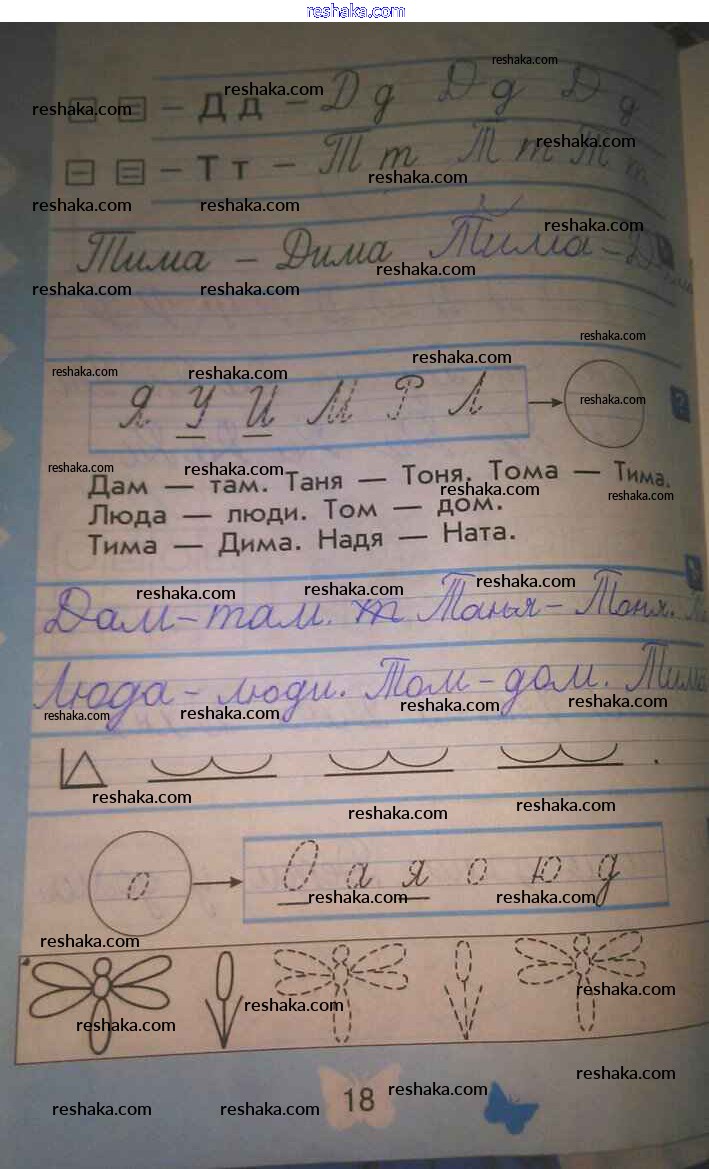 reshaka.com
– Д д – Д д Д д Д д
– Т т – Т т Т т Т т
Тима – Дима Тима – Д
Я У И М Р Л
Дам — там. Таня — Тоня. Тома — Тима.
Люда — люди. Том — дом.
Тима — Дима. Надя — Ната.
Дам – там. т Танья – Тоня.
Люда – люди. Том – дом. Тима
о О а я о ю д
18